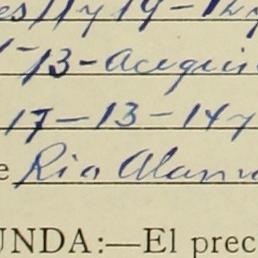 es 11 y 19-12 y
-13-Acequi
17-13-14 y
e Rio Alam
UNDA:—El prec